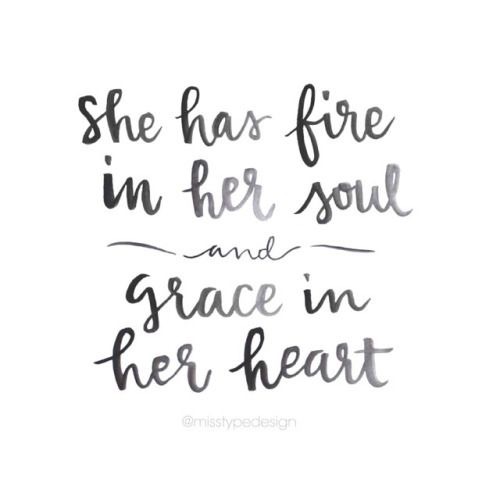 She has fire
in her soul
and
grace in
her heart
@misstypedesign